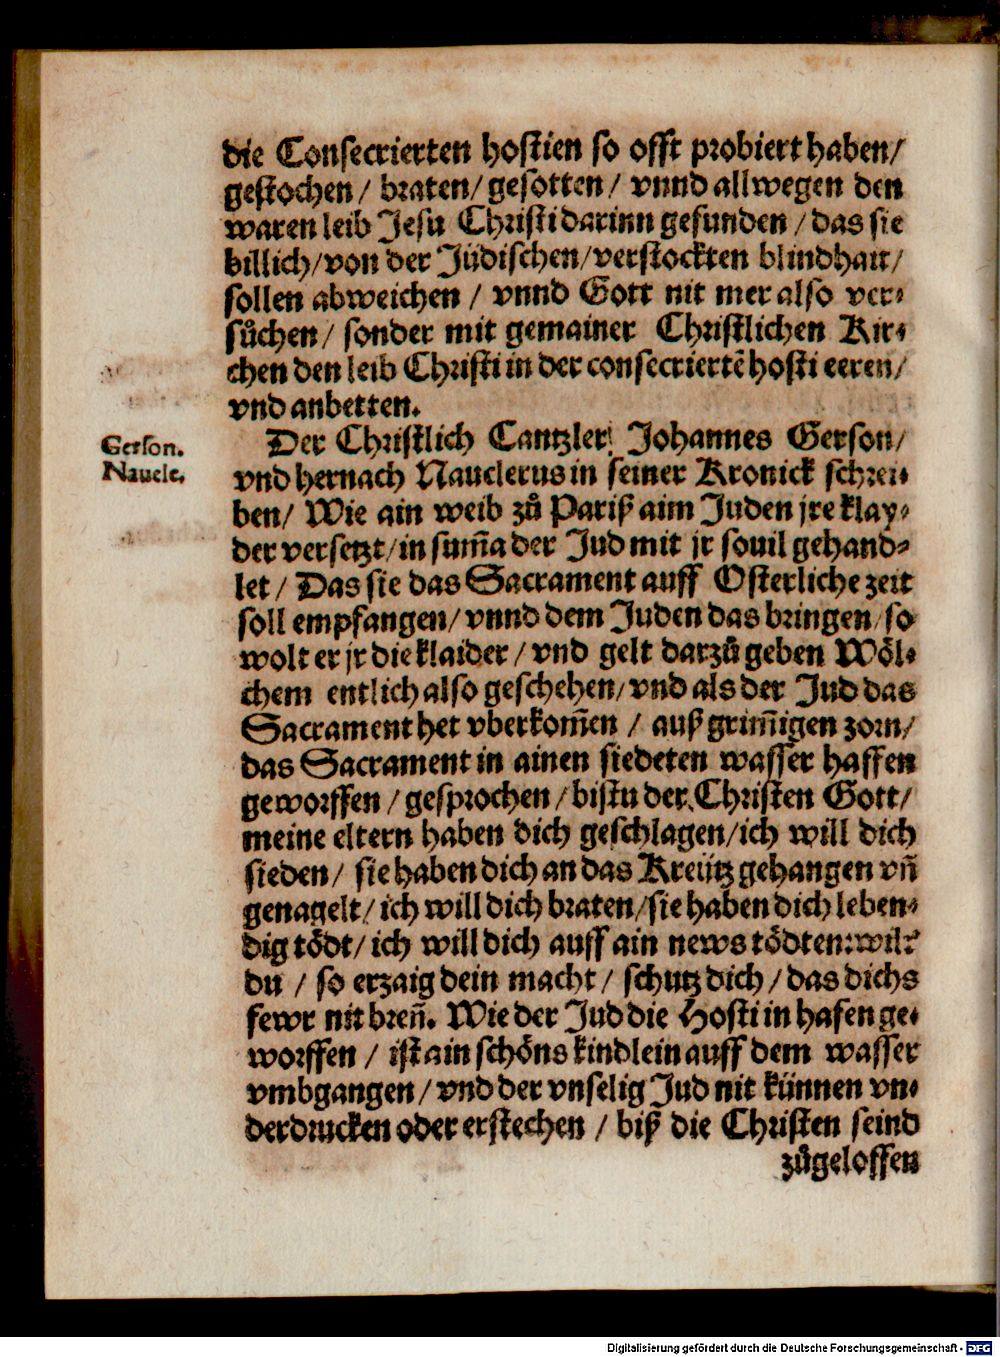 die Consecrierten hostien so offt probiert haben/
gestochen / braten/ gesotten / vnnd allwegen den
waren leib Jesu Christi darinn gefunden / das sie
billich/ von der Jüdischen/ verstockten blindhait/
sollen abweichen / vnnd Gott nit mer also ver⸗
sůchen / sonder mit gemainer Christlichen Kir⸗
chen den leib Christi in der consecriertē hosti eeren/
vnd anbetten.
Der Christlich Cantzler/ Johannes Gerson/
Gerson.
vnd hernach Nauclerus in seiner Kronick schrei⸗
Naucle.
ben/ Wie ain weib zů Pariß aim Juden jre klay⸗
der versetzt/ in sum̃a der Jud mit jr souil gehand⸗
let / Das sie das Sacrament auff Osterliche zeit
soll empfangen/ vnnd dem Juden das bringen/ so
wolt er jr die klaider / vnd gelt darzů geben Wöl⸗
chem entlich also geschehen/ vnd als der Jud das
Sacrament het vberkom̃en / auß grim̃igen zorn/
das Sacrament in ainen siedeten wasser haffen
geworffen / gesprochen / bistu der Christen Gott/
meine eltern haben dich geschlagen/ ich will dich
sieden / sie haben dich an das Kreütz gehangen vñ
genagelt / ich will dich braten/ sie haben dich leben⸗
dig tödt/ ich will dich auff ain news tödten: wilt
du / so erzaig dein macht / schutz dich / das dichs
fewr nit breñ. Wie der Jud die Hosti in hafen ge⸗
worffen / ist ain schöns kindlein auff dem wasser
vmbgangen / vnd der vnselig Jud nit künnen vn⸗
derdrucken oder erstechen / biß die Christen seind
zůgeloffen
Digitalisierung gefördert durch die Deutsche Forschungsgemeinschaft - DFG